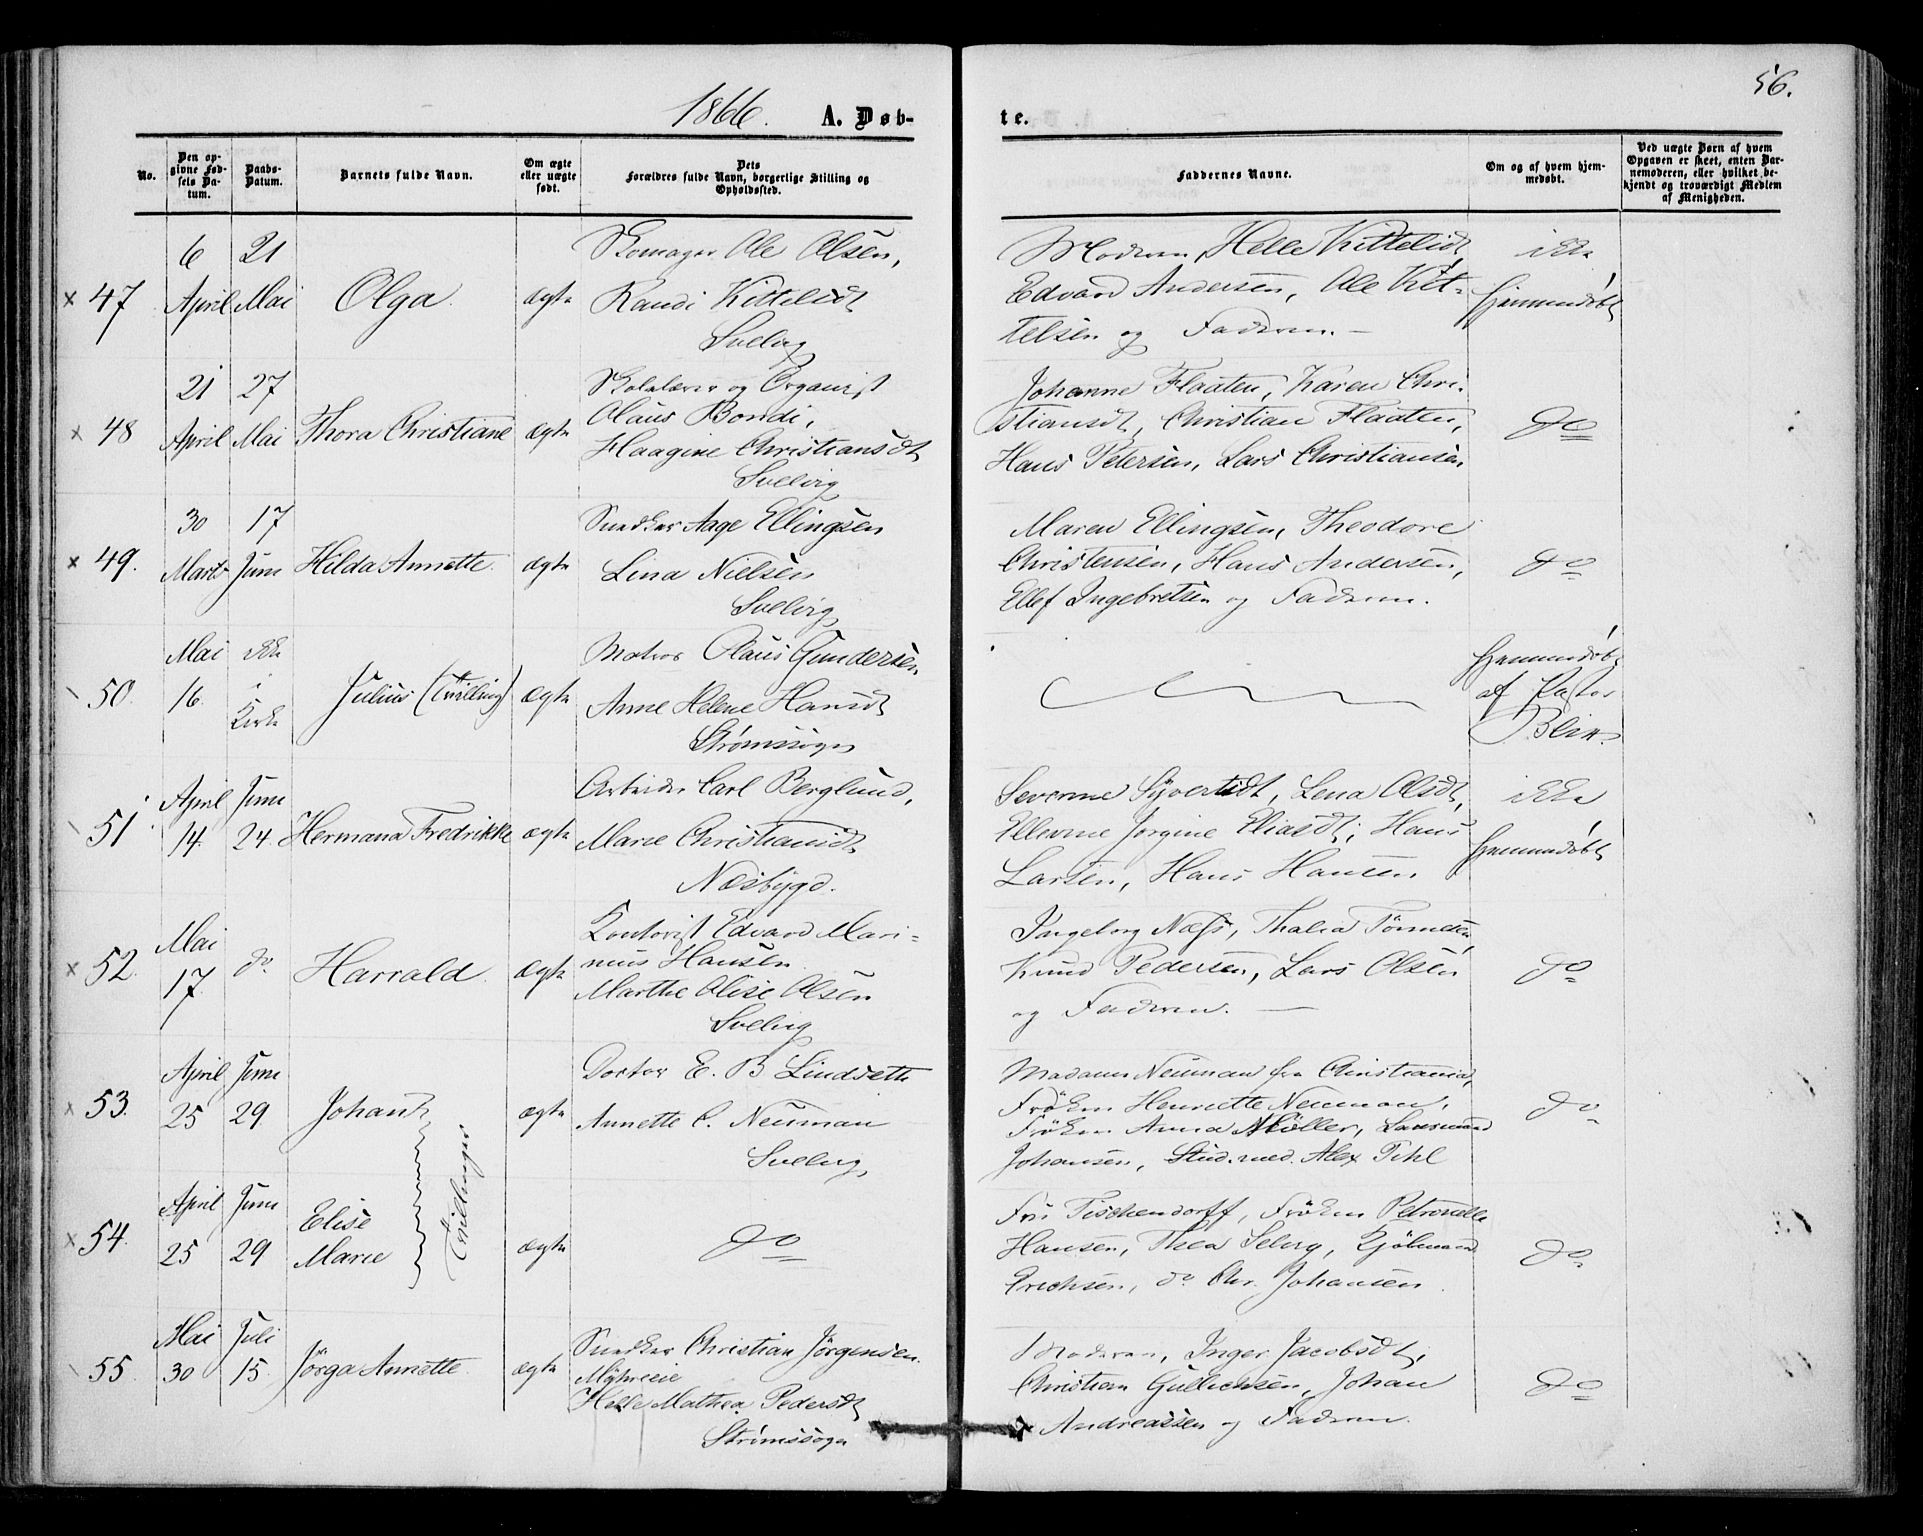 56.
1866. A. Døb-
te.
No.
Den op-
givne Fød-
sels Da-
tum.
Daabs-
Datum.
Barnets fulde Navn.
Om ægte
eller uægte
født.
Dets
Forældres fulde Navn, borgerlige Stilling og
Opholdssted.
Faddernes Navne.
Om og af hvem hjem-
medøbt.
Ved uægte Børn af hvem
Opgaven er skeet, enten Bar-
nemoderen, eller hvilket be-
kjendt og troværdigt Medlem
af Menigheden.
× 47
6
April
21
Mai
Olga.
ægte
Skomager Ole Olsen,
Randi Kittelsdt
Svelvig
Moderen, Helle Kittelsdt,
Edvard Andersen, Ole Kit-
telsen og Faderen. –
ikke
hjemmedøbt
× 48
21
April
27
Mai
Thora Christiane
ægte
Skolelærer og Organist
Olaus Bondi,
Haagine Christiansdt
Svelvig
Johanne Flaaten, Karen Chri-
stiansdt, Christian Flaaten,
Hans Petersen, Lars Christiansen
do
× 49.
30
Marts
17
Juni
Hilda Annette.
ægte
Snedker Aage Ellingsen
Lina Nielsen
Svelvig
Maren Ellingsen, Theodore
Christensen, Hans Andersen,
Ellef Ingebretsen og Faderen.
do
50.
Mai
16.
ikke
i
Kirke
Julius (Tvilling)
ægte
Matros Olaus Gundersen,
Anne Helene Hansdt
Strømssogn
hjemmedøbt
af Pastor
Blix.
51
April
14.
Juni
24.
Hermana Fredrikke
ægte
Arbeider Carl Berglund,
Maree Christiansdt
Næsbygd.
Severine Syvertsdt, Lena Olsdt,
Ellevine Jorgine Eliasdt, Hans
Larsen, Hans Hansen
ikke
hjemmedøbt
× 52.
Mai
17.
do
Harrald.
ægte
Kontorist Edvard Mari-
nius Hansen
Marthe Olise Olsen
Svelvig
Ingeborg Næss, Thalia Tönnesen,
Knud Pedersen, Lars Olsen
og Faderen. –
do
× 53.
April
25
Juni
29
Johan
Tvillinger
ægte
Doctor E. B Lindseth
Annette C. Neuman
Svelvig
Madam Neuman fra Christiania,
Frøken Henriette Neuman,
Frøken Anna Møller,
Johansen, Stud. med. Alex Tihl
do
× 54.
April
25
Juni
29
Elise
Marie
ægte
do
Fru Tischendorff, Frøken Petronelle
Hansen, Thea Selvig, Kjøbmand
Erichsen, do Chr. Johansen
do
55
Mai
30
Juli
15.
Jørga Annette.
ægte
Snedker Christian Jørgensen.
Helle Mathea Pedersdt
Strømssogn
Moderen, Inger Jacobsdt,
Christian Gullichsen, Johan
Andreassen og Faderen.
do